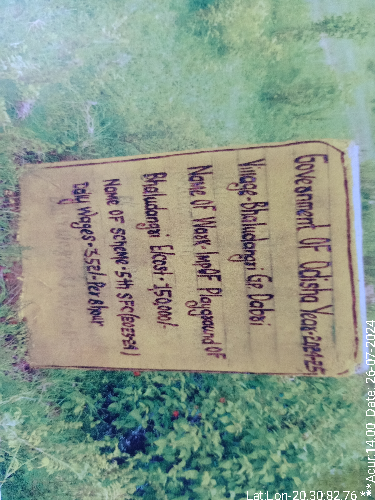 Government Of Odisha Year-2024-25
Village-Bhaludangi Gp Dabri
Name of Work-Imp of Playground of
Bhaludangi E/cost-150,000/-
Name Of Scheme-5th SFC
Daily Wages-352/-Per 8 hour
Lat Lon-20.30:82.76 ***Acur:14.00 Date: 26-07-2024